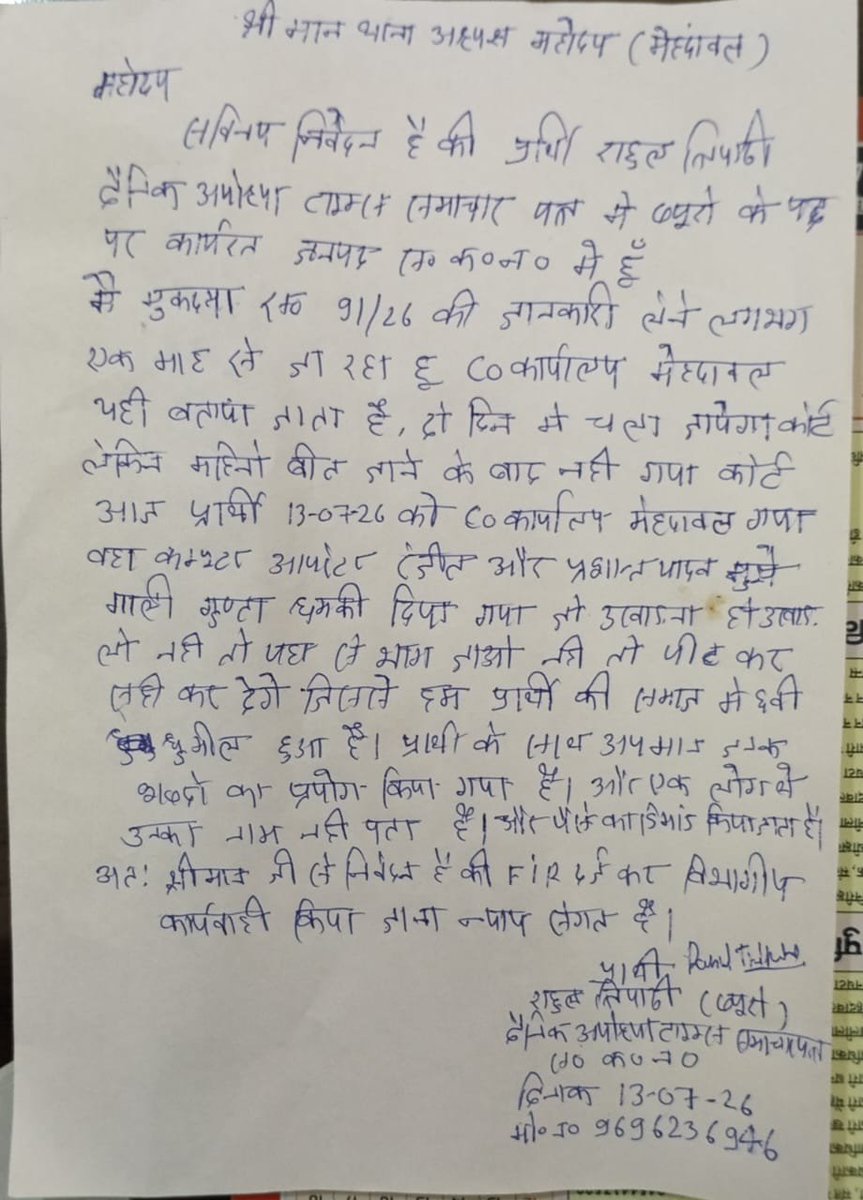 श्री मान थाना अध्यक्ष महोदय (मेंहदावल)
महोदय
सविनय निवेदन है की प्रार्थी राहुल त्रिपाठी
दैनिक अयोध्या टाइम्स समाचार पत्र मे ब्यूरो के पद
पर कार्यरत जनपद स० क० न० मे हूँ
मै मुकदमा स० 91/26 की जानकारी लेने लगभग
एक माह से जा रहा हू CO कार्यालय मेंहदावल
यही बताया जाता है, दो दिन मे चला जायेगा कोर्ट
लेकिन महिनो बीत जाने के बाद नही गया कोर्ट
आज प्रार्थी 13-07-26 को CO कार्यालय मेहदावल गया
वहा कम्प्यूटर आपरेटर रंजीत और प्रशान्त यादव मुझे
गाली गुप्ता धमकी दिया गया जो उखाडना हो उखाड
लो नही तो यहा से भाग जाओ नही तो पीट कर
सही कर देगे जिससे हम प्रार्थी की समाज मे छवी
धुमील हुआ है। प्रार्थी के साथ अपमान जनक
शब्दो का प्रयोग किया गया है। और एक लोग थे
उनका नाम नही पता है। और पैसे का डिमांड किया जाता है।
अतः श्रीमान जी से निवेदन है की FIR दर्ज कर विभागीय
कार्यवाही किया जाना न्याय संगत है।
प्रार्थी
राहुल त्रिपाठी (ब्यूरो)
दैनिक अयोध्या टाइम्स समाचार पत्र
स० क० न०
दिनाक 13-07-26
मो० न० 9696236946